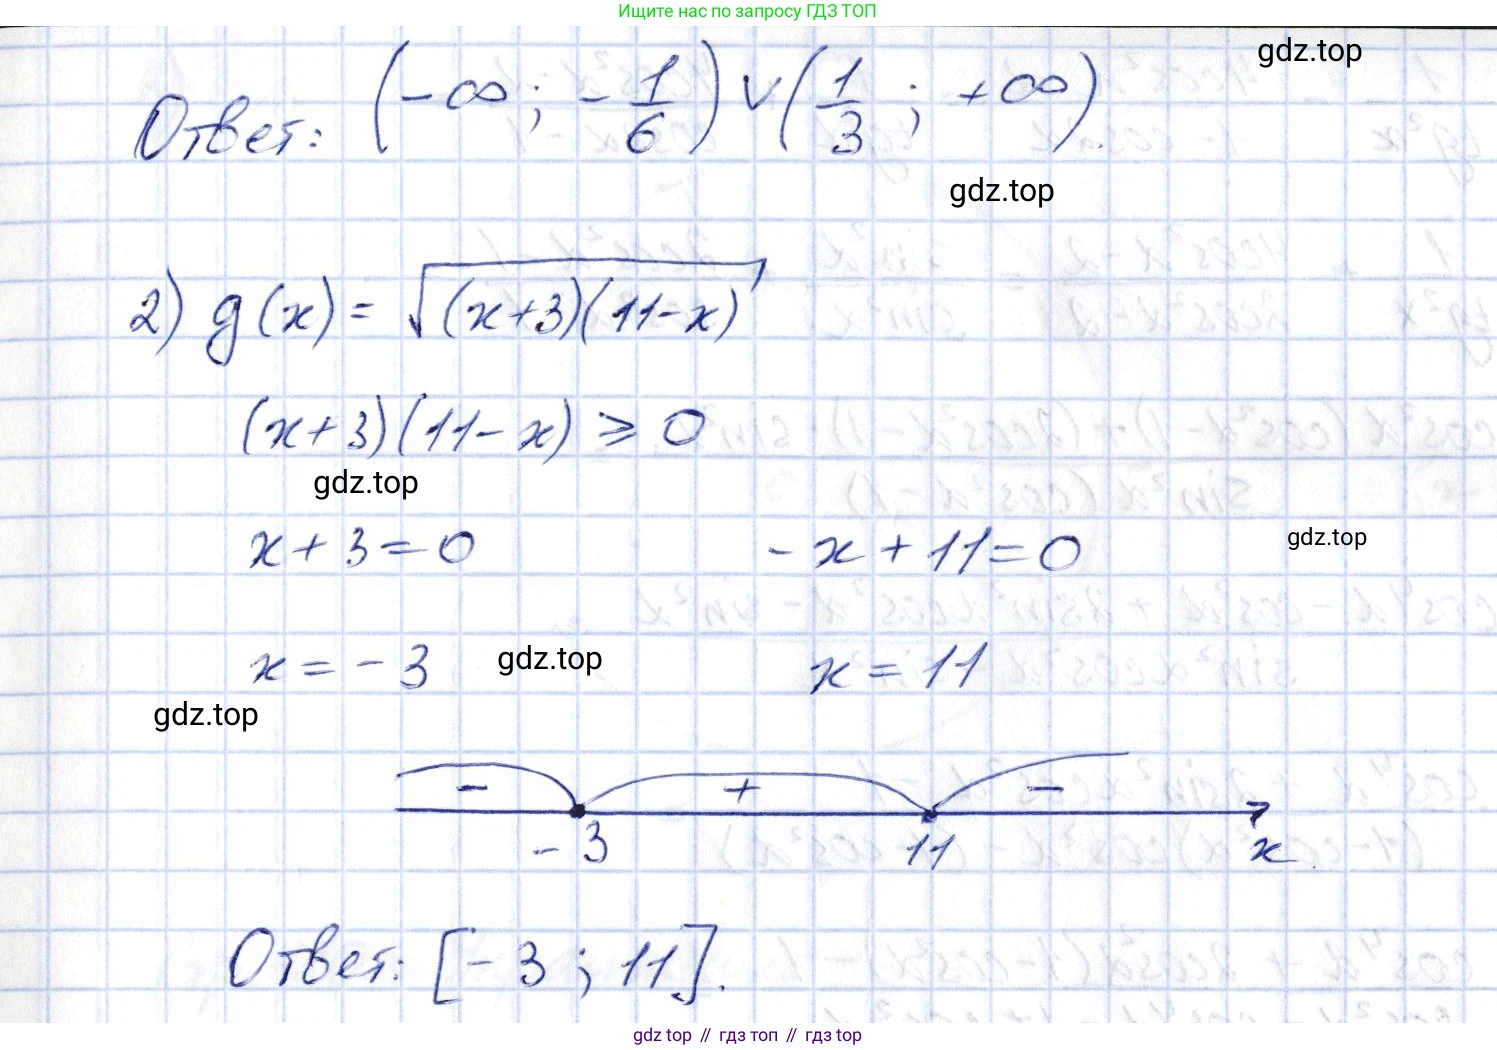 Ищите нас по запросу ГДЗ ТОП
gdz.top
Ответ: (-∞; -1/6) ∨ (1/3; +∞).
gdz.top
2) g(x) = √(x+3)(11-x)
(x+3)(11-x) ⩾ 0
gdz.top
x+3=0 -x+11=0
gdz.top
x=-3 gdz.top x=11
gdz.top
- + -
-3 11 x
Ответ: [-3; 11].
gdz top // гдз топ // гдз top